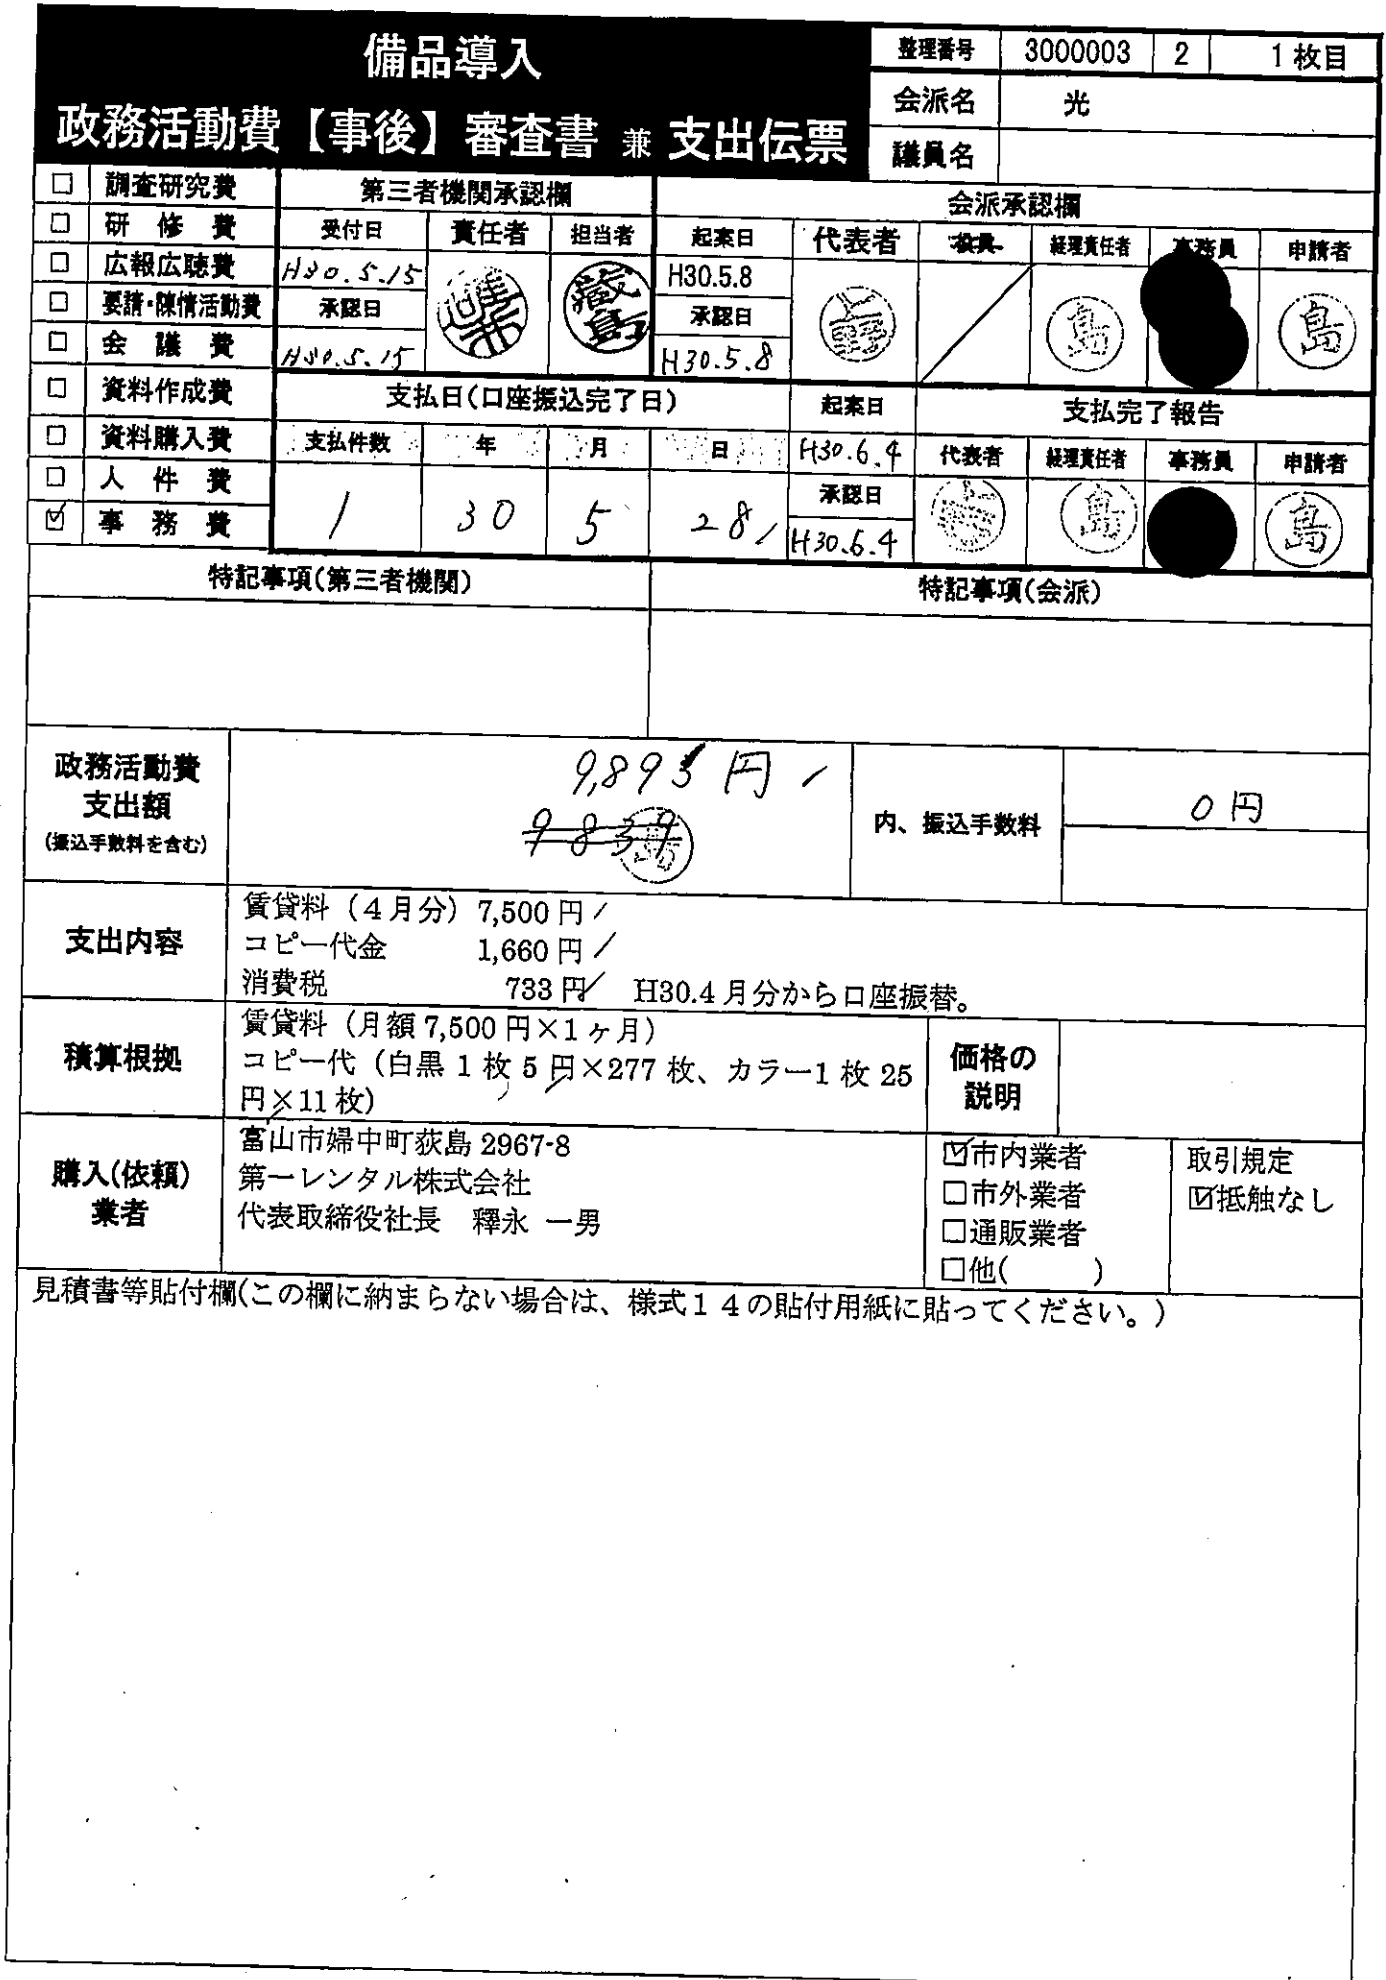 備品導入
政務活動費【事後】審査書 兼 支出伝票
整理番号 3000003 2 1枚目
会派名 光
議員名
□ 調査研究費
□ 研修費
□ 広報広聴費
□ 要請・陳情活動費
□ 会議費
□ 資料作成費
□ 資料購入費
□ 人件費
☑ 事務費
第三者機関承認欄
受付日 責任者 担当者
H30.5.15
承認日
H30.5.15
蔵島
会派承認欄
起案日 代表者 役員 経理責任者 事務員 申請者
H30.5.8
承認日
H30.5.8
上野 島 島
支払日(口座振込完了日)
支払件数 年 月 日
1 30 5 28
起案日
H30.6.4
承認日
H30.6.4
支払完了報告
代表者 経理責任者 事務員 申請者
島 島
特記事項(第三者機関) 特記事項(会派)
政務活動費
支出額
(振込手数料を含む)
9,893円
9839
島
内、振込手数料 0円
支出内容
賃貸料(4月分) 7,500円
コピー代金 1,660円
消費税 733円 H30.4月分から口座振替。
積算根拠
賃貸料(月額7,500円×1ヶ月)
コピー代(白黒1枚5円×277枚、カラー1枚25
円×11枚)
価格の
説明
購入(依頼)
業者
富山市婦中町荻島2967-8
第一レンタル株式会社
代表取締役社長 釋永 一男
☑市内業者
□市外業者
□通販業者
□他( )
取引規定
☑抵触なし
見積書等貼付欄(この欄に納まらない場合は、様式14の貼付用紙に貼ってください。)